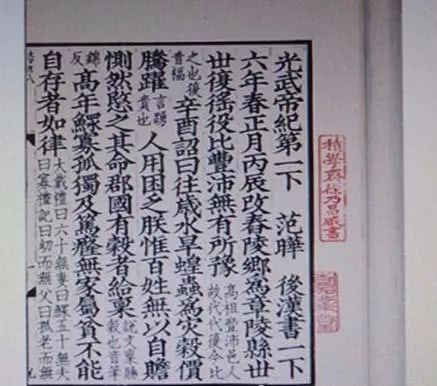 光武帝紀第一下 范曄 後漢書一下
六年春正月丙辰改舂陵鄉為章陵縣世
世復徭役比豐沛無有所豫高祖豐沛邑人故代代復今比
之也復音福辛酉詔曰往歲水旱蝗蟲為災穀價
騰躍言踴貴也人用困乏朕惟百姓無以自贍
惻然愍之其命郡國有穀者給稟說文稟賜穀也音筆
錦反高年鰥寡孤獨及篤癃無家屬貧不能
自存者如律大戴禮曰六十無妻曰鰥五十無夫曰寡禮記曰幼而無父曰孤老而無
積學齋徐乃昌藏書